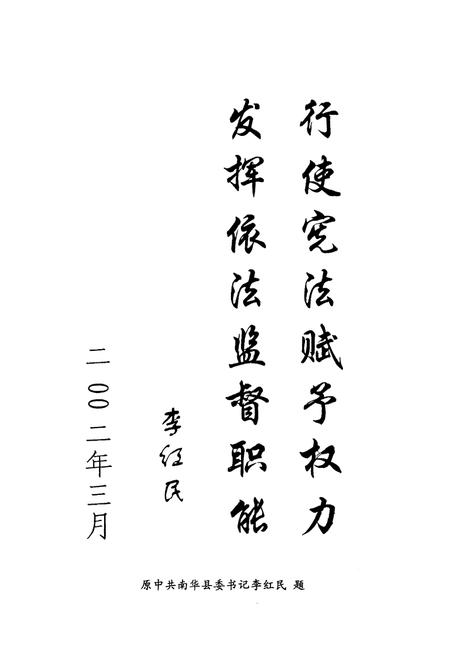 行使宪法赋予权力
发挥依法监督职能
李红民
二〇〇二年三月
原中共南华县委书记李红民 题